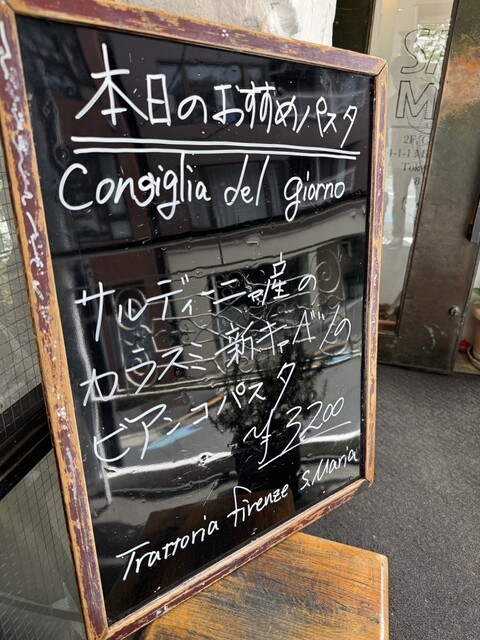 本日のおすすめパスタ
Consiglia del giorno
サルディーニャ産の
カラスミ新キャベツの
ビアンコパスタ
¥3200
Trattoria firenze S.Maria
2F,